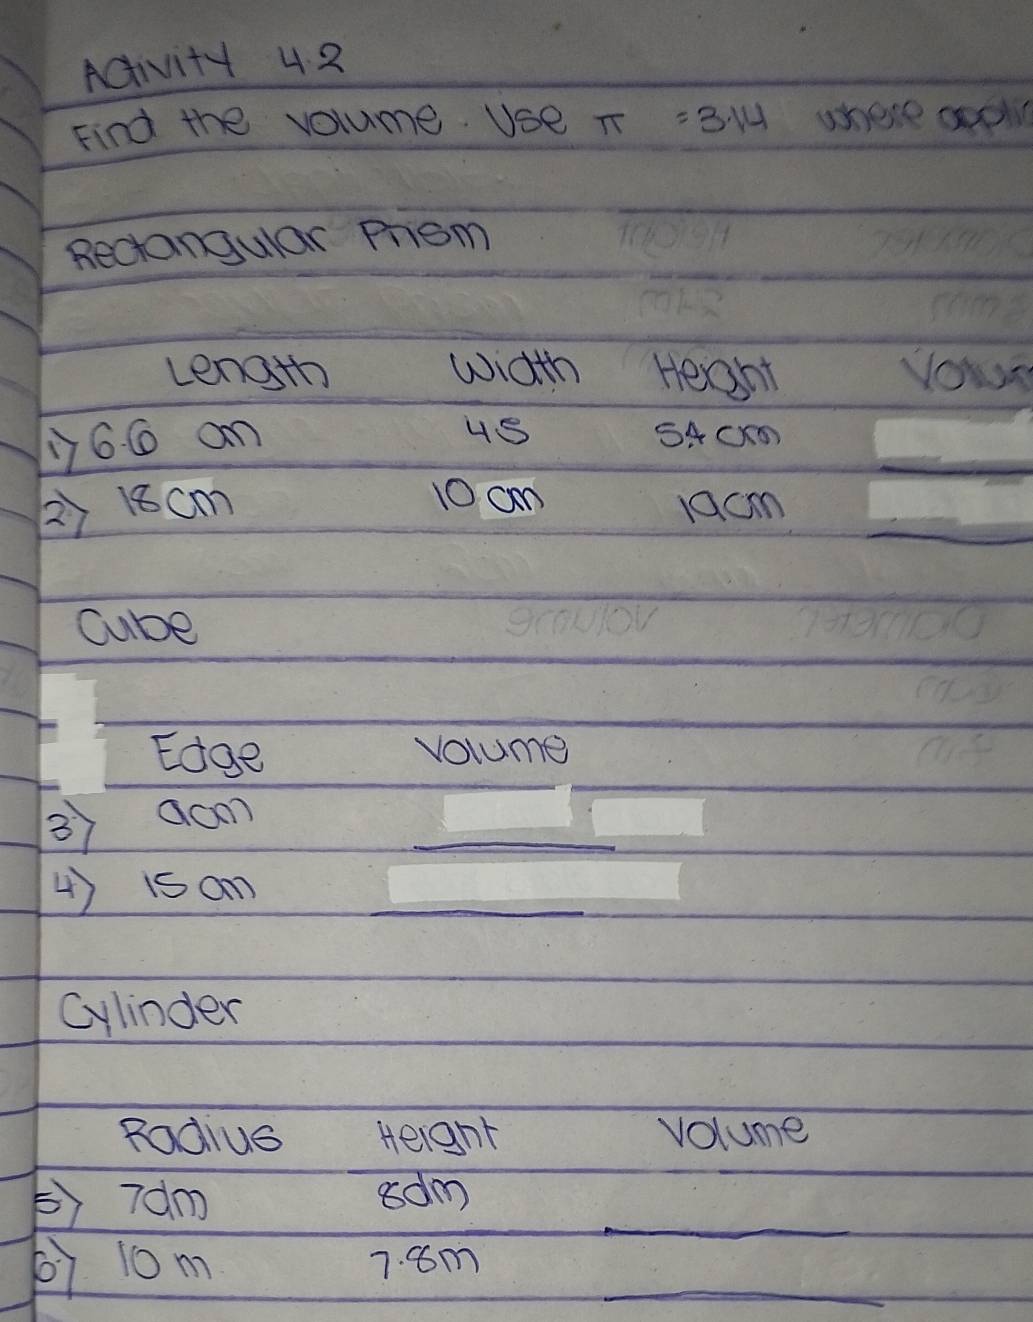 Activity 4.2
Find the volume. Use π = 3.14 where
Rectangular Prism
Length Width Height
1) 6.6 cm 45 5.4 cm
2) 18 cm 10 cm 19cm
Cube
Edge Volume
3) 9cm
4) 15 cm
Cylinder
Radius Height Volume
5) 7dm 8dm
6) 10 m 7.8m